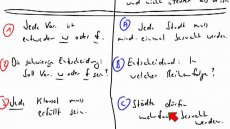 ① Jede Var. ist
entweder w oder f.
② Die schwierige Entscheidung:
Soll Var. w oder f sein?
③ Jede Klausel muss
erfüllt sein.
Ⓐ Jede Stadt muss
mind. einmal besucht werden.
Ⓑ Entscheidend: In
welcher Reihenfolge?
Ⓒ Städte dürfen
mehrfach besucht
werden.